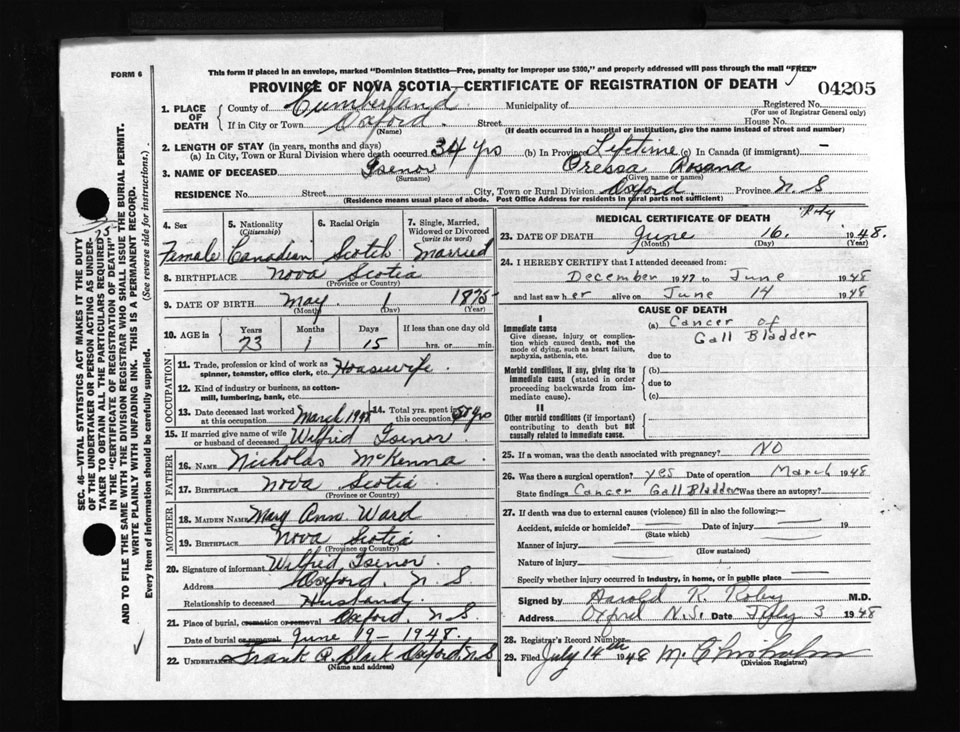 FORM 6
This form if placed in an envelope, marked "Dominion Statistics—Free, penalty for improper use $300," and properly addressed will pass through the mail "FREE"
PROVINCE OF NOVA SCOTIA—CERTIFICATE OF REGISTRATION OF DEATH
04205
1. PLACE OF DEATH
County of Cumberland Municipality of Registered No.
(For use of Registrar General only)
If in City or Town Oxford. Street House No.
(Name) (If death occurred in a hospital or institution, give the name instead of street and number)
2. LENGTH OF STAY (in years, months and days)
(a) In City, Town or Rural Division where death occurred 34 yrs (b) In Province Lifetime (c) In Canada (if immigrant) —
3. NAME OF DECEASED Isenor Oressa Rosana
(Surname) (Given name or names)
RESIDENCE No. Street City, Town or Rural Division Oxford. Province N S
(Residence means usual place of abode. Post Office Address for residents in rural parts not sufficient)
4. Sex 5. Nationality (Citizenship) 6. Racial Origin 7. Single, Married, Widowed or Divorced (write the word)
Female Canadian Scotch Married
8. BIRTHPLACE Nova Scotia
(Province or Country)
9. DATE OF BIRTH May 1 1875
(Month) (Day) (Year)
10. AGE in Years Months Days If less than one day old
73 1 15 hrs. or min.
OCCUPATION
11. Trade, profession or kind of work as spinner, teamster, office clerk, etc. Housewife
12. Kind of industry or business, as cotton-mill, lumbering, bank, etc.
13. Date deceased last worked at this occupation March 14. Total yrs. spent in this occupation yrs
15. If married give name of wife or husband of deceased Wilfred Isenor
FATHER
16. NAME Nicholas McKenna
17. BIRTHPLACE Nova Scotia
(Province or Country)
MOTHER
18. MAIDEN NAME Mary Ann Ward
19. BIRTHPLACE Nova Scotia
(Province or Country)
20. Signature of informant Wilfred Isenor
Address Oxford. N S
Relationship to deceased Husband
21. Place of burial, cremation or removal Oxford, N S
Date of burial or removal June 19 - 1948.
22. UNDERTAKER Frank Oxford, N S
(Name and address)
MEDICAL CERTIFICATE OF DEATH
Roby
23. DATE OF DEATH June 16. 1948.
(Month) (Day) (Year)
24. I HEREBY CERTIFY that I attended deceased from:
December 1947 to June 1948
and last saw her alive on June 14 1948
CAUSE OF DEATH
I
Immediate cause
Give disease, injury or complication which caused death, not the mode of dying, such as heart failure, asphyxia, asthenia, etc.
(a) Cancer of
Gall Bladder
due to
Morbid conditions, if any, giving rise to immediate cause (stated in order proceeding backwards from immediate cause).
(b)
due to
(c)
II
Other morbid conditions (if important) contributing to death but not causally related to immediate cause.
25. If a woman, was the death associated with pregnancy? NO
26. Was there a surgical operation? yes Date of operation March 1948
State findings Cancer Gall Bladder Was there an autopsy?
27. If death was due to external causes (violence) fill in also the following:—
Accident, suicide or homicide? Date of injury 19
(State which)
Manner of injury
(How sustained)
Nature of injury
Specify whether injury occurred in industry, in home, or in public place
Signed by Harold R. Roby M.D.
Address Oxford N.S. Date July 3 1948
28. Registrar's Record Number
29. Filed July 14th 1948 M. Chisholm
(Division Registrar)
SEC. 46—VITAL STATISTICS ACT MAKES IT THE DUTY
OF THE UNDERTAKER OR PERSON ACTING AS UNDER-
TAKER TO OBTAIN ALL THE PARTICULARS REQUIRED
IN THE "CERTIFICATE OF REGISTRATION OF DEATH"
AND TO FILE THE SAME WITH THE DIVISION REGISTRAR WHO SHALL ISSUE THE BURIAL PERMIT.
WRITE PLAINLY WITH UNFADING INK. THIS IS A PERMANENT RECORD.
Every item of information should be carefully supplied. (See reverse side for instructions.)